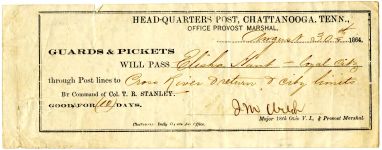 HEAD-QUARTERS POST, CHATTANOOGA, TENN.,
OFFICE PROVOST MARSHAL.
August 30th 1864.
GUARDS & PICKETS
WILL PASS Elisha Hunt - loyal city
through Post lines to Cross River & return & city limits
BY COMMAND OF COL. T. R. STANLEY.
GOOD FOR (10) DAYS.
Major 18th Ohio V. I., & Provost Marshal.